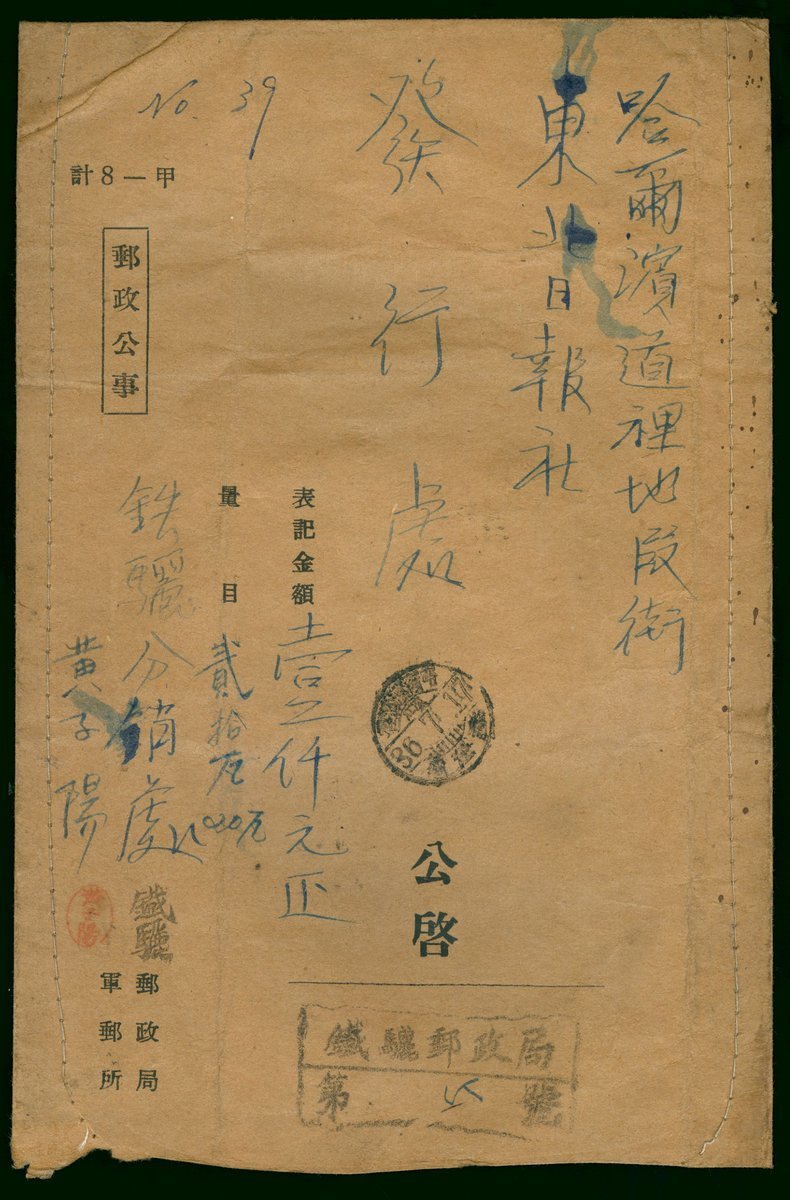 哈爾濱道裡地段街
東北日報社
發行處
公啓
No. 39
表記金額
壹仟元正
量目
貳拾
計8—甲
郵政公事
鉄驪分銷處
黄子陽
鐵驪
郵政局
軍郵所
36 7 17
鐵驪郵政局
第 號